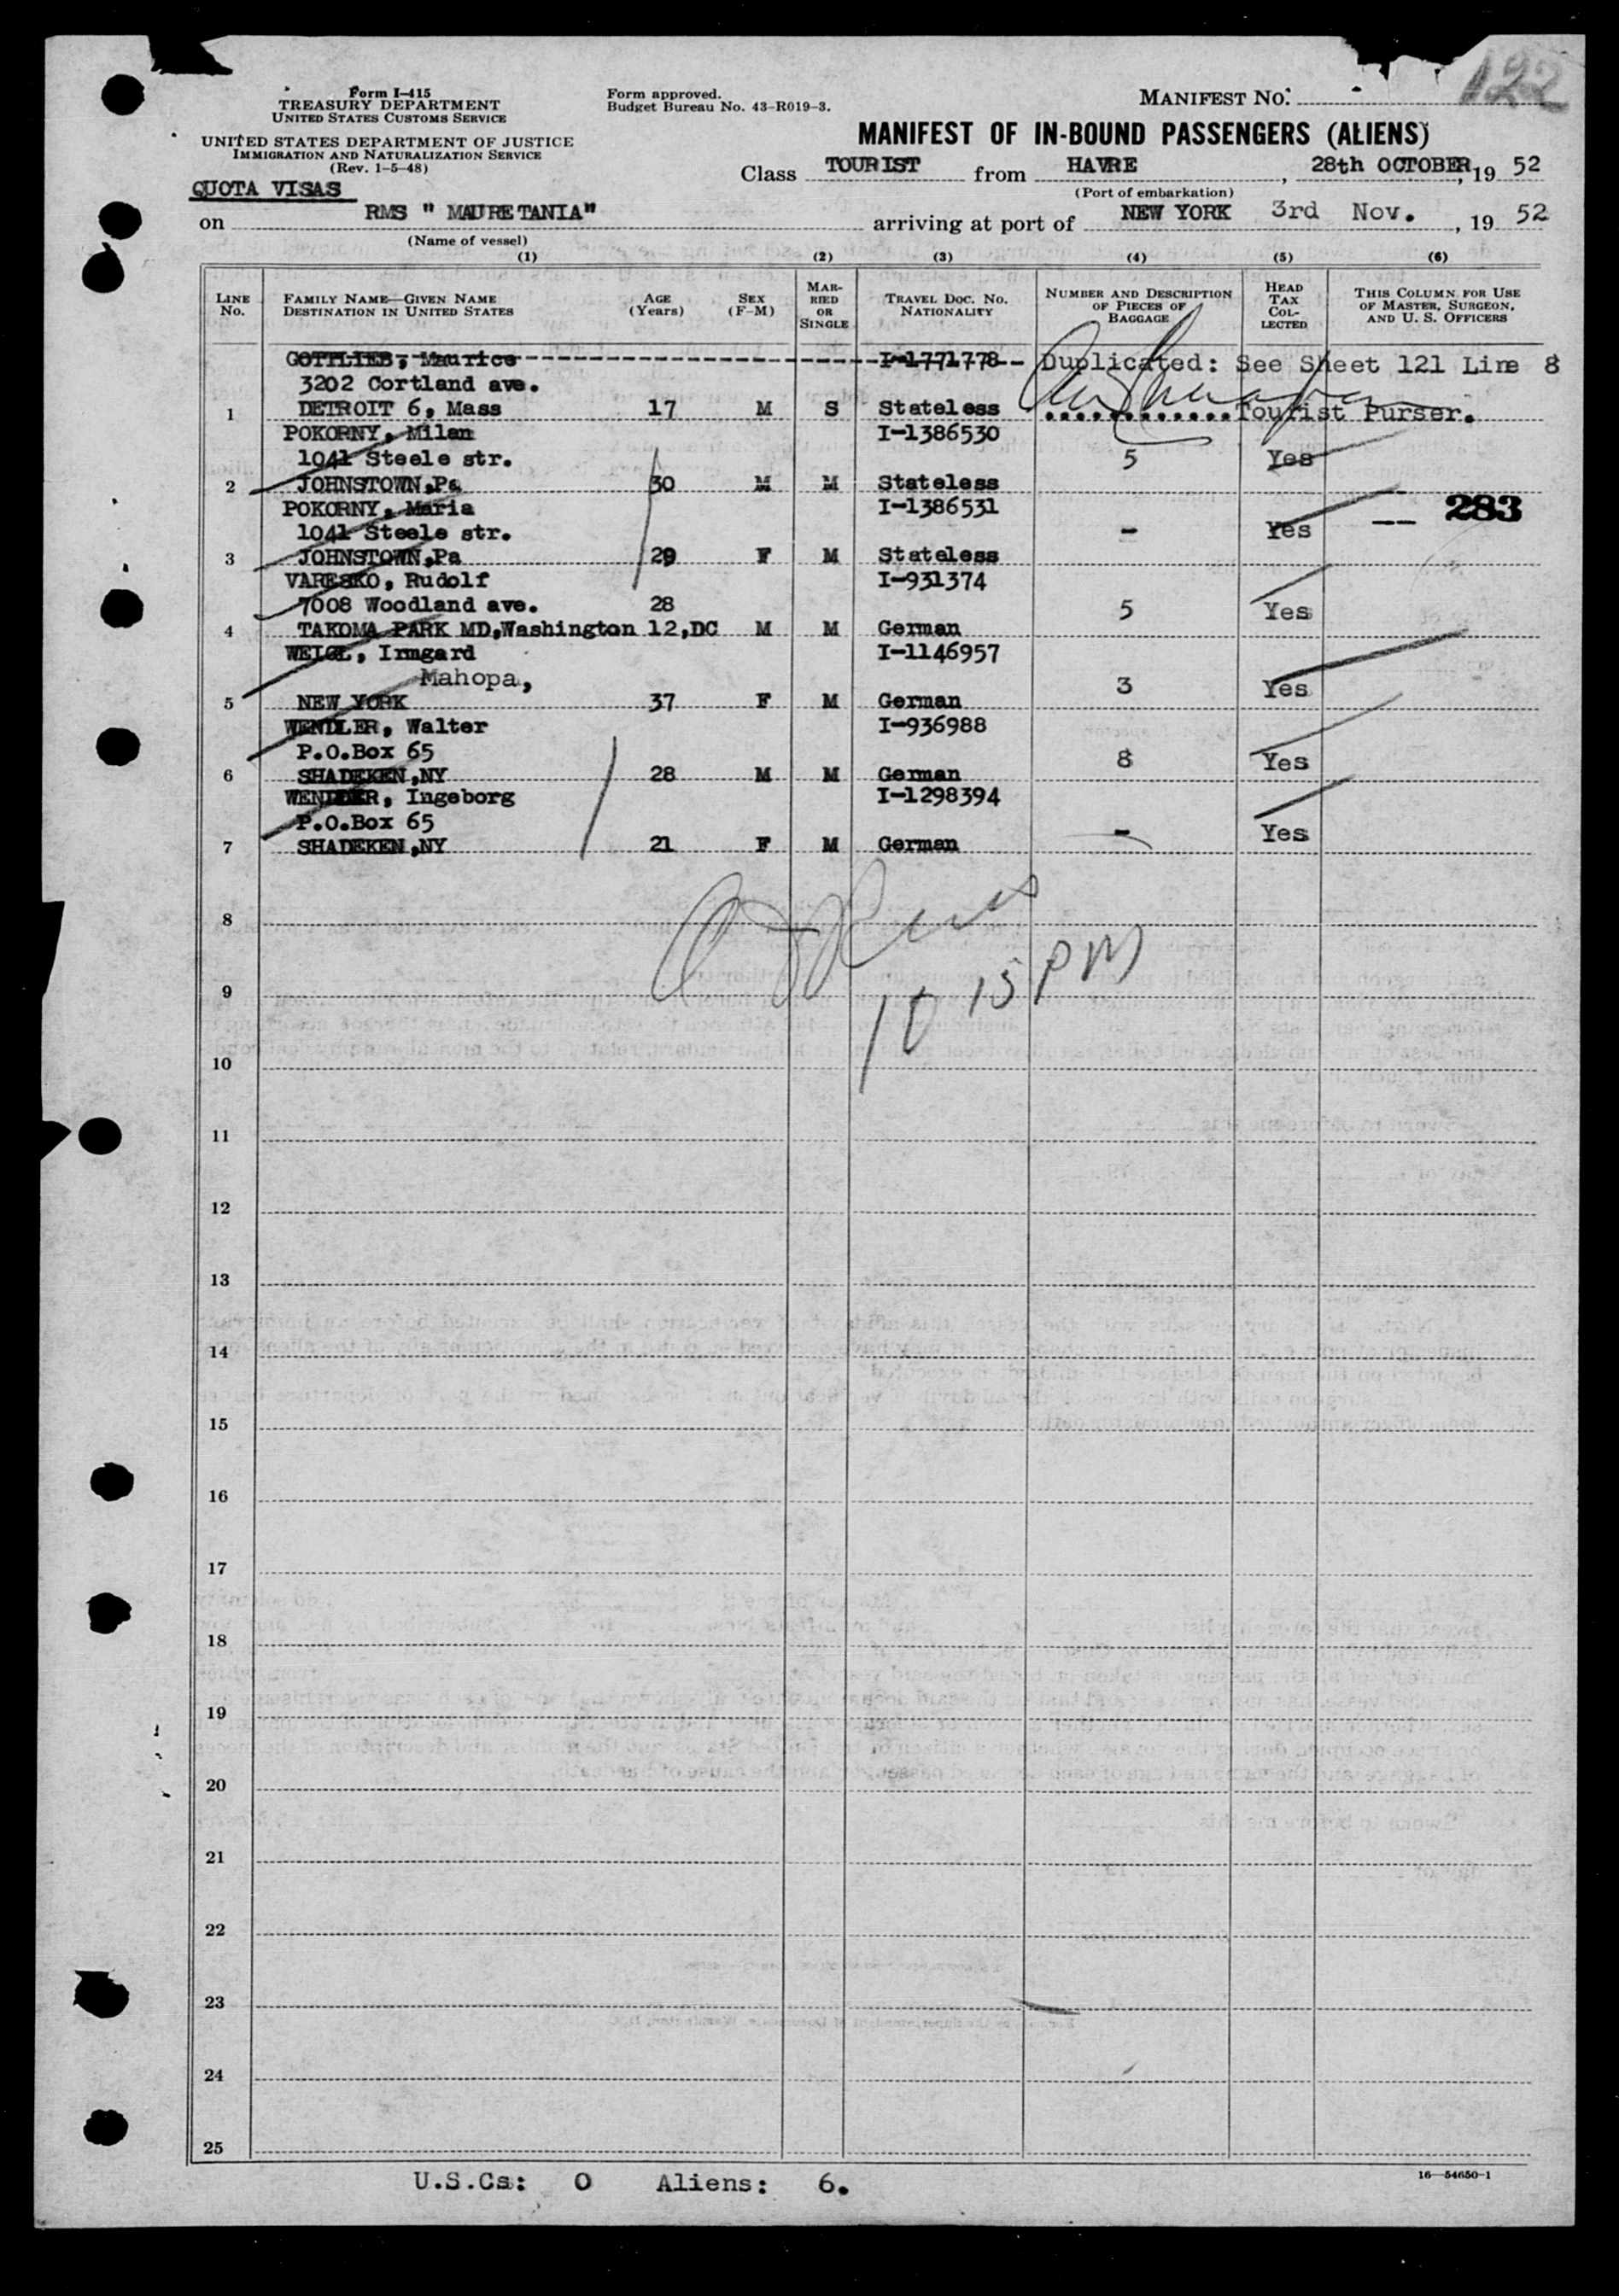 122
Form I-415
TREASURY DEPARTMENT
UNITED STATES CUSTOMS SERVICE
UNITED STATES DEPARTMENT OF JUSTICE
IMMIGRATION AND NATURALIZATION SERVICE
(Rev. 1-5-48)
Form approved.
Budget Bureau No. 43-R019-3.
MANIFEST No.
MANIFEST OF IN-BOUND PASSENGERS (ALIENS)
Class TOURIST from HAVRE, 28th OCTOBER, 19 52
(Port of embarkation)
QUOTA VISAS
on RMS " MAURETANIA" arriving at port of NEW YORK 3rd Nov. , 19 52
(Name of vessel)
(1) (2) (3) (4) (5) (6)
LINE No. FAMILY NAME—GIVEN NAME DESTINATION IN UNITED STATES AGE (Years) SEX (F-M) MARRIED OR SINGLE TRAVEL DOC. NO. NATIONALITY NUMBER AND DESCRIPTION OF PIECES OF BAGGAGE HEAD TAX COLLECTED THIS COLUMN FOR USE OF MASTER, SURGEON, AND U. S. OFFICERS
GOTTLIEB, Maurice I-1771778 Duplicated: See Sheet 121 Line 8
3202 Cortland ave.
1 DETROIT 6, Mass 17 M S Stateless ............Tourist Purser.
POKORNY, Milan I-1386530
1041 Steele str. 5 Yes
2 JOHNSTOWN,Pa 30 M M Stateless
POKORNY, Maria I-1386531 -- 283
1041 Steele str. - Yes
3 JOHNSTOWN,Pa 29 F M Stateless
VARESKO, Rudolf I-931374
7008 Woodland ave. 28 5 Yes
4 TAKOMA PARK MD,Washington 12,DC M M German
WEIGL, Irmgard I-1146957
Mahopa, 3 Yes
5 NEW YORK 37 F M German
WENDLER, Walter I-936988
P.O.Box 65 8 Yes
6 SHADEKEN,NY 28 M M German
WENDLER, Ingeborg I-1298394
P.O.Box 65 - Yes
7 SHADEKEN,NY 21 F M German
8
9
10 15 PM
10
11
12
13
14
15
16
17
18
19
20
21
22
23
24
25
U.S.Cs: 0 Aliens: 6.
16—54650-1